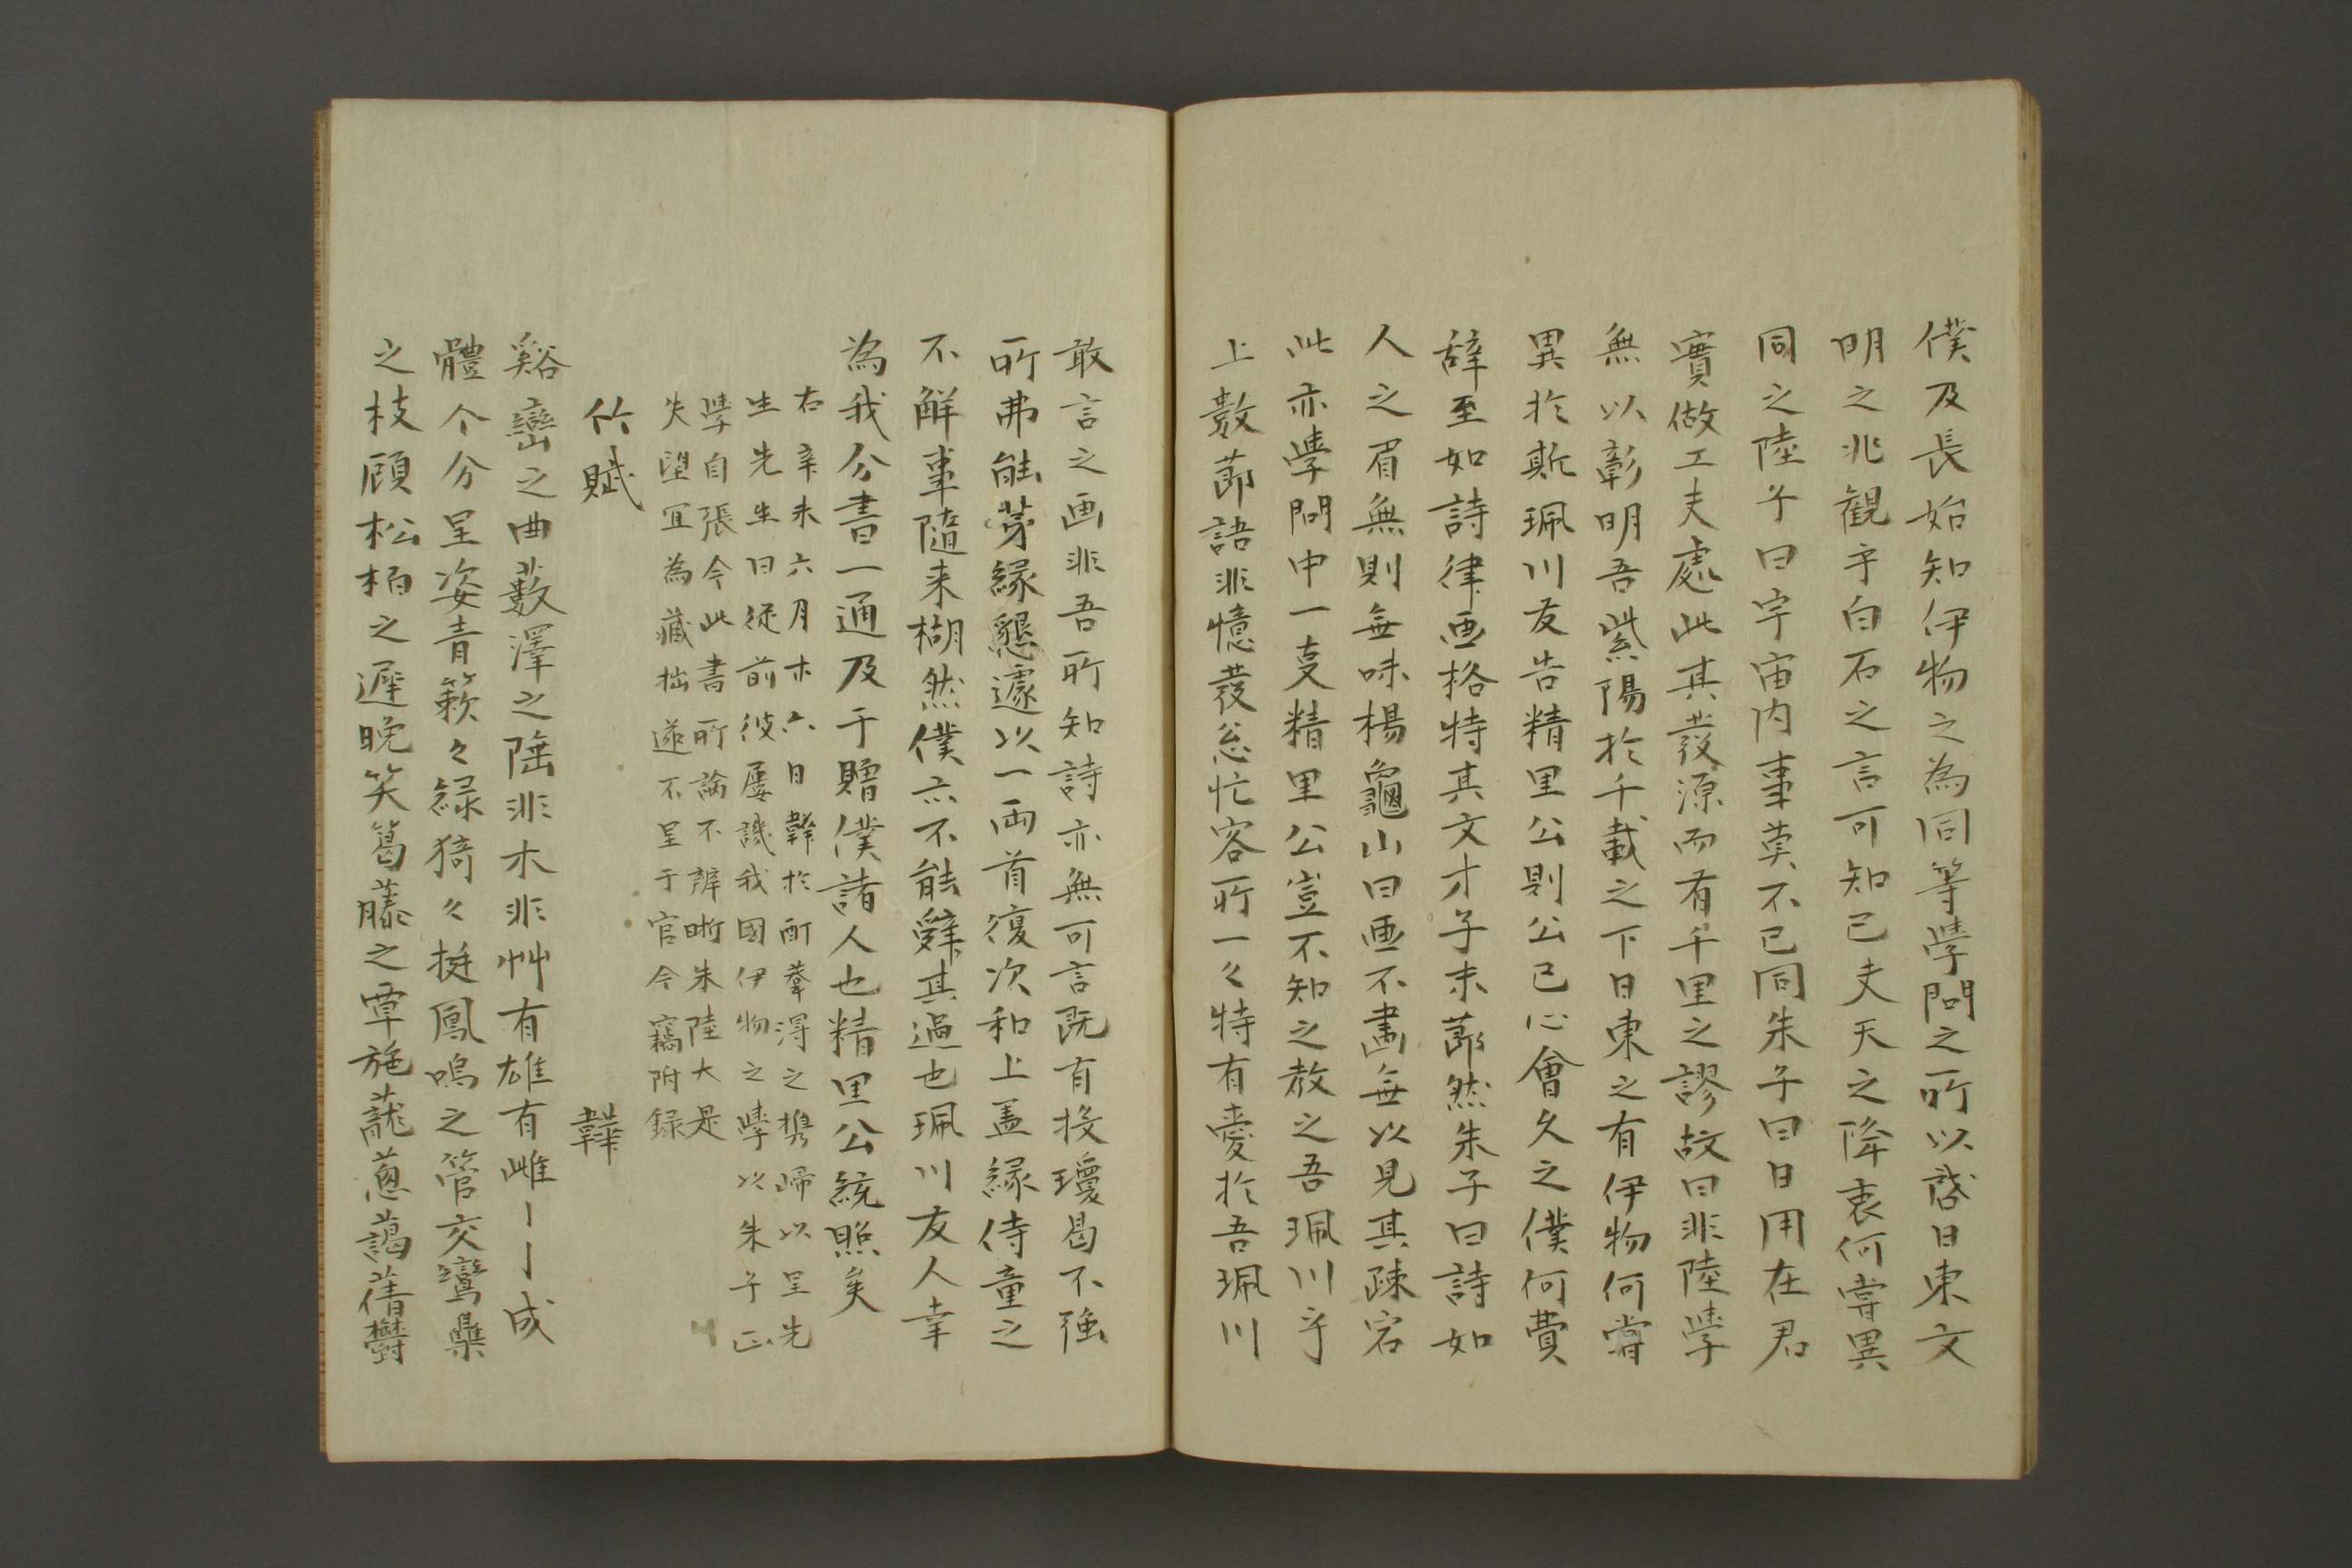 僕及長始知伊物之為同等學問之所以啓日東文
明之兆観乎白石之言可知已夫天之降衷何嘗異
同之陸子曰宇宙内事莫不已同朱子曰日用在君
實做工夫處此其發源而有千里之謬故曰非陸學
無以彰明吾紫陽於千載之下日東之有伊物何嘗
異於斯珮川友告精里公則公已心會久之僕何費
辞至如詩律画格特其文才子末莭然朱子曰詩如
人之眉無則無味楊龜山曰画不畫無以見其疎宕
此亦學問中一支精里公豈不知之教之吾珮川乎
上數莭語非憶發怱忙容所一々特有愛於吾珮川
敢言之画非吾所知詩亦無可言既有投瓊曷不强
所弗能芽縁懇遽以一両首復次和上盖縁侍童之
不解事隨来糊然僕亦不能辤其過也珮川友人幸
為我分書一通及于贈僕諸人也精里公統照矣
右辛未六月廿六日韡於酊菴得之携歸以呈先
生先生曰從前彼屡譏我國伊物之學以朱子正
學自張今此書所論不辨晣朱陸大是
失望冝為藏拙遂不呈于官今竊附録
竹賦　韡
谿巒之曲藪澤之陲非木非艸有雄有雌丨丨成
體个分呈姿青簌々緑猗々挺鳳鳴之管交鸞棊
之枝顧松栢之遲晩笑葛藤之覃施蘢蔥藹蒨欝